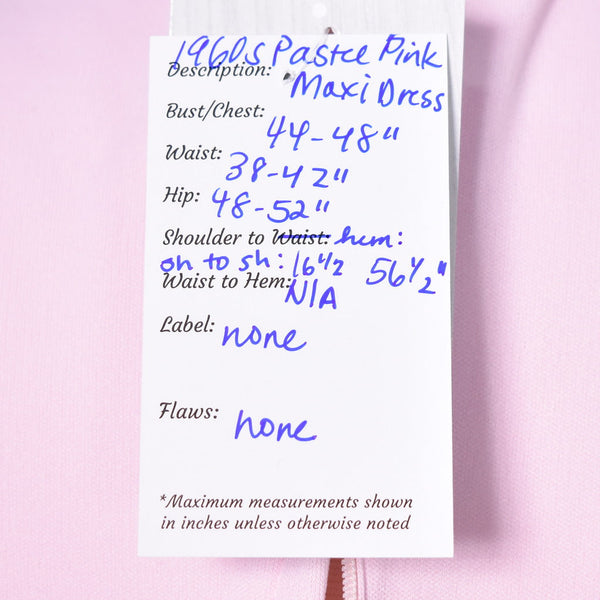 1960s Pastel Pink
Description: Maxi Dress
Bust/Chest: 44-48"
Waist: 38-42"
Hip: 48-52"
Shoulder to Waist: hem:
sh to sh: 16 1/2 56 1/2"
Waist to Hem: N/A
Label: none
Flaws: none
*Maximum measurements shown
in inches unless otherwise noted